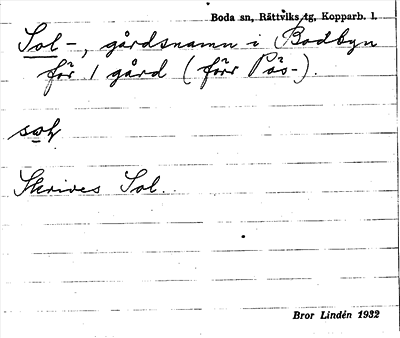 Boda sn, Rättviks tg, Kopparb. l.
Sol-, gårdsnamn i Bodbyn
för 1 gård (förr Pås-).
Skrives Sol.
Bror Lindén 1932